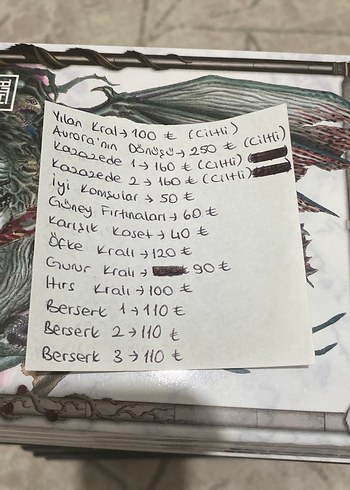 Yılan Kral → 100 ₺ (Ciltli)
Aurora'nın Dönüşü → 250 ₺ (Ciltli)
Kazazede 1 → 160 ₺ (Ciltli)
Kazazede 2 → 160 ₺ (Ciltli)
İyi Komşular → 50 ₺
Güney Fırtınaları → 60 ₺
Karışık Kaset → 40 ₺
Öfke Kralı → 120 ₺
Gurur Kralı → 90 ₺
Hırs Kralı → 100 ₺
Berserk 1 → 110 ₺
Berserk 2 → 110 ₺
Berserk 3 → 110 ₺